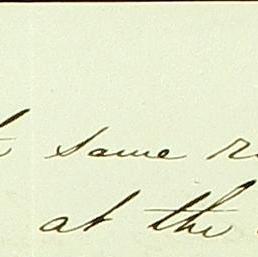 same
at the